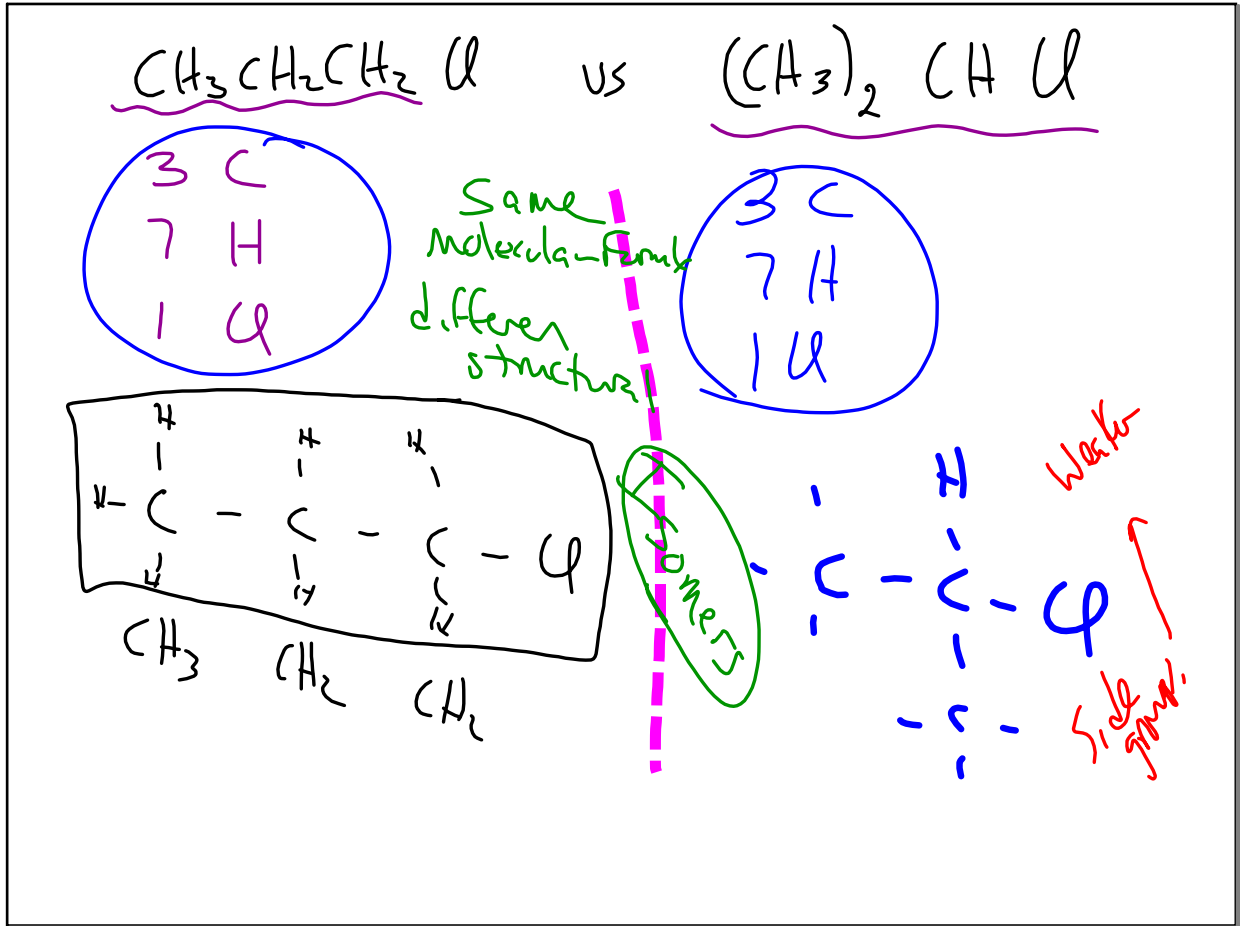 CH₃CH₂CH₂Cl vs (CH₃)₂CHCl
3 C
7 H
1 Cl
Same
Molecular Formula
differen
structura
3 C
7 H
1 Cl
H H H
H - C - C - C - Cl
H H H
CH₃ CH₂ CH₂
Isomers
H
- C - C - Cl
- C -
Weaker
Side
group.